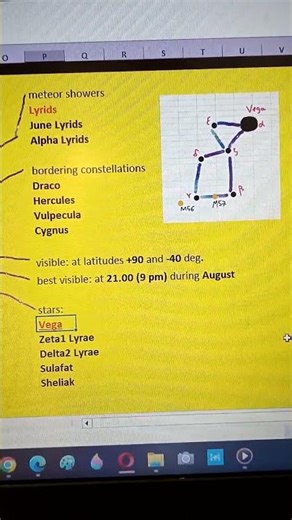 O P Q R S T U V
meteor showers
Lyrids
June Lyrids
Alpha Lyrids
bordering constellations
Draco
Hercules
Vulpecula
Cygnus
Vega
ε α
δ ζ
γ β
M56 M57
visible: at latitudes +90 and -40 deg.
best visible: at 21.00 (9 pm) during August
stars:
Vega
Zeta1 Lyrae
Delta2 Lyrae
Sulafat
Sheliak